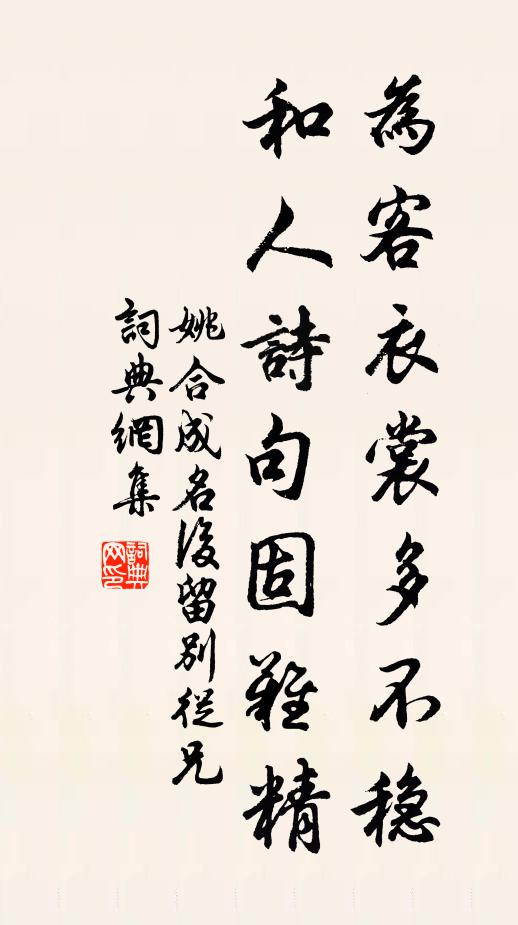 為客衣裳多不穩
和人詩句固難精
姚合成名後留別從兄
詞典網集
詞典网印